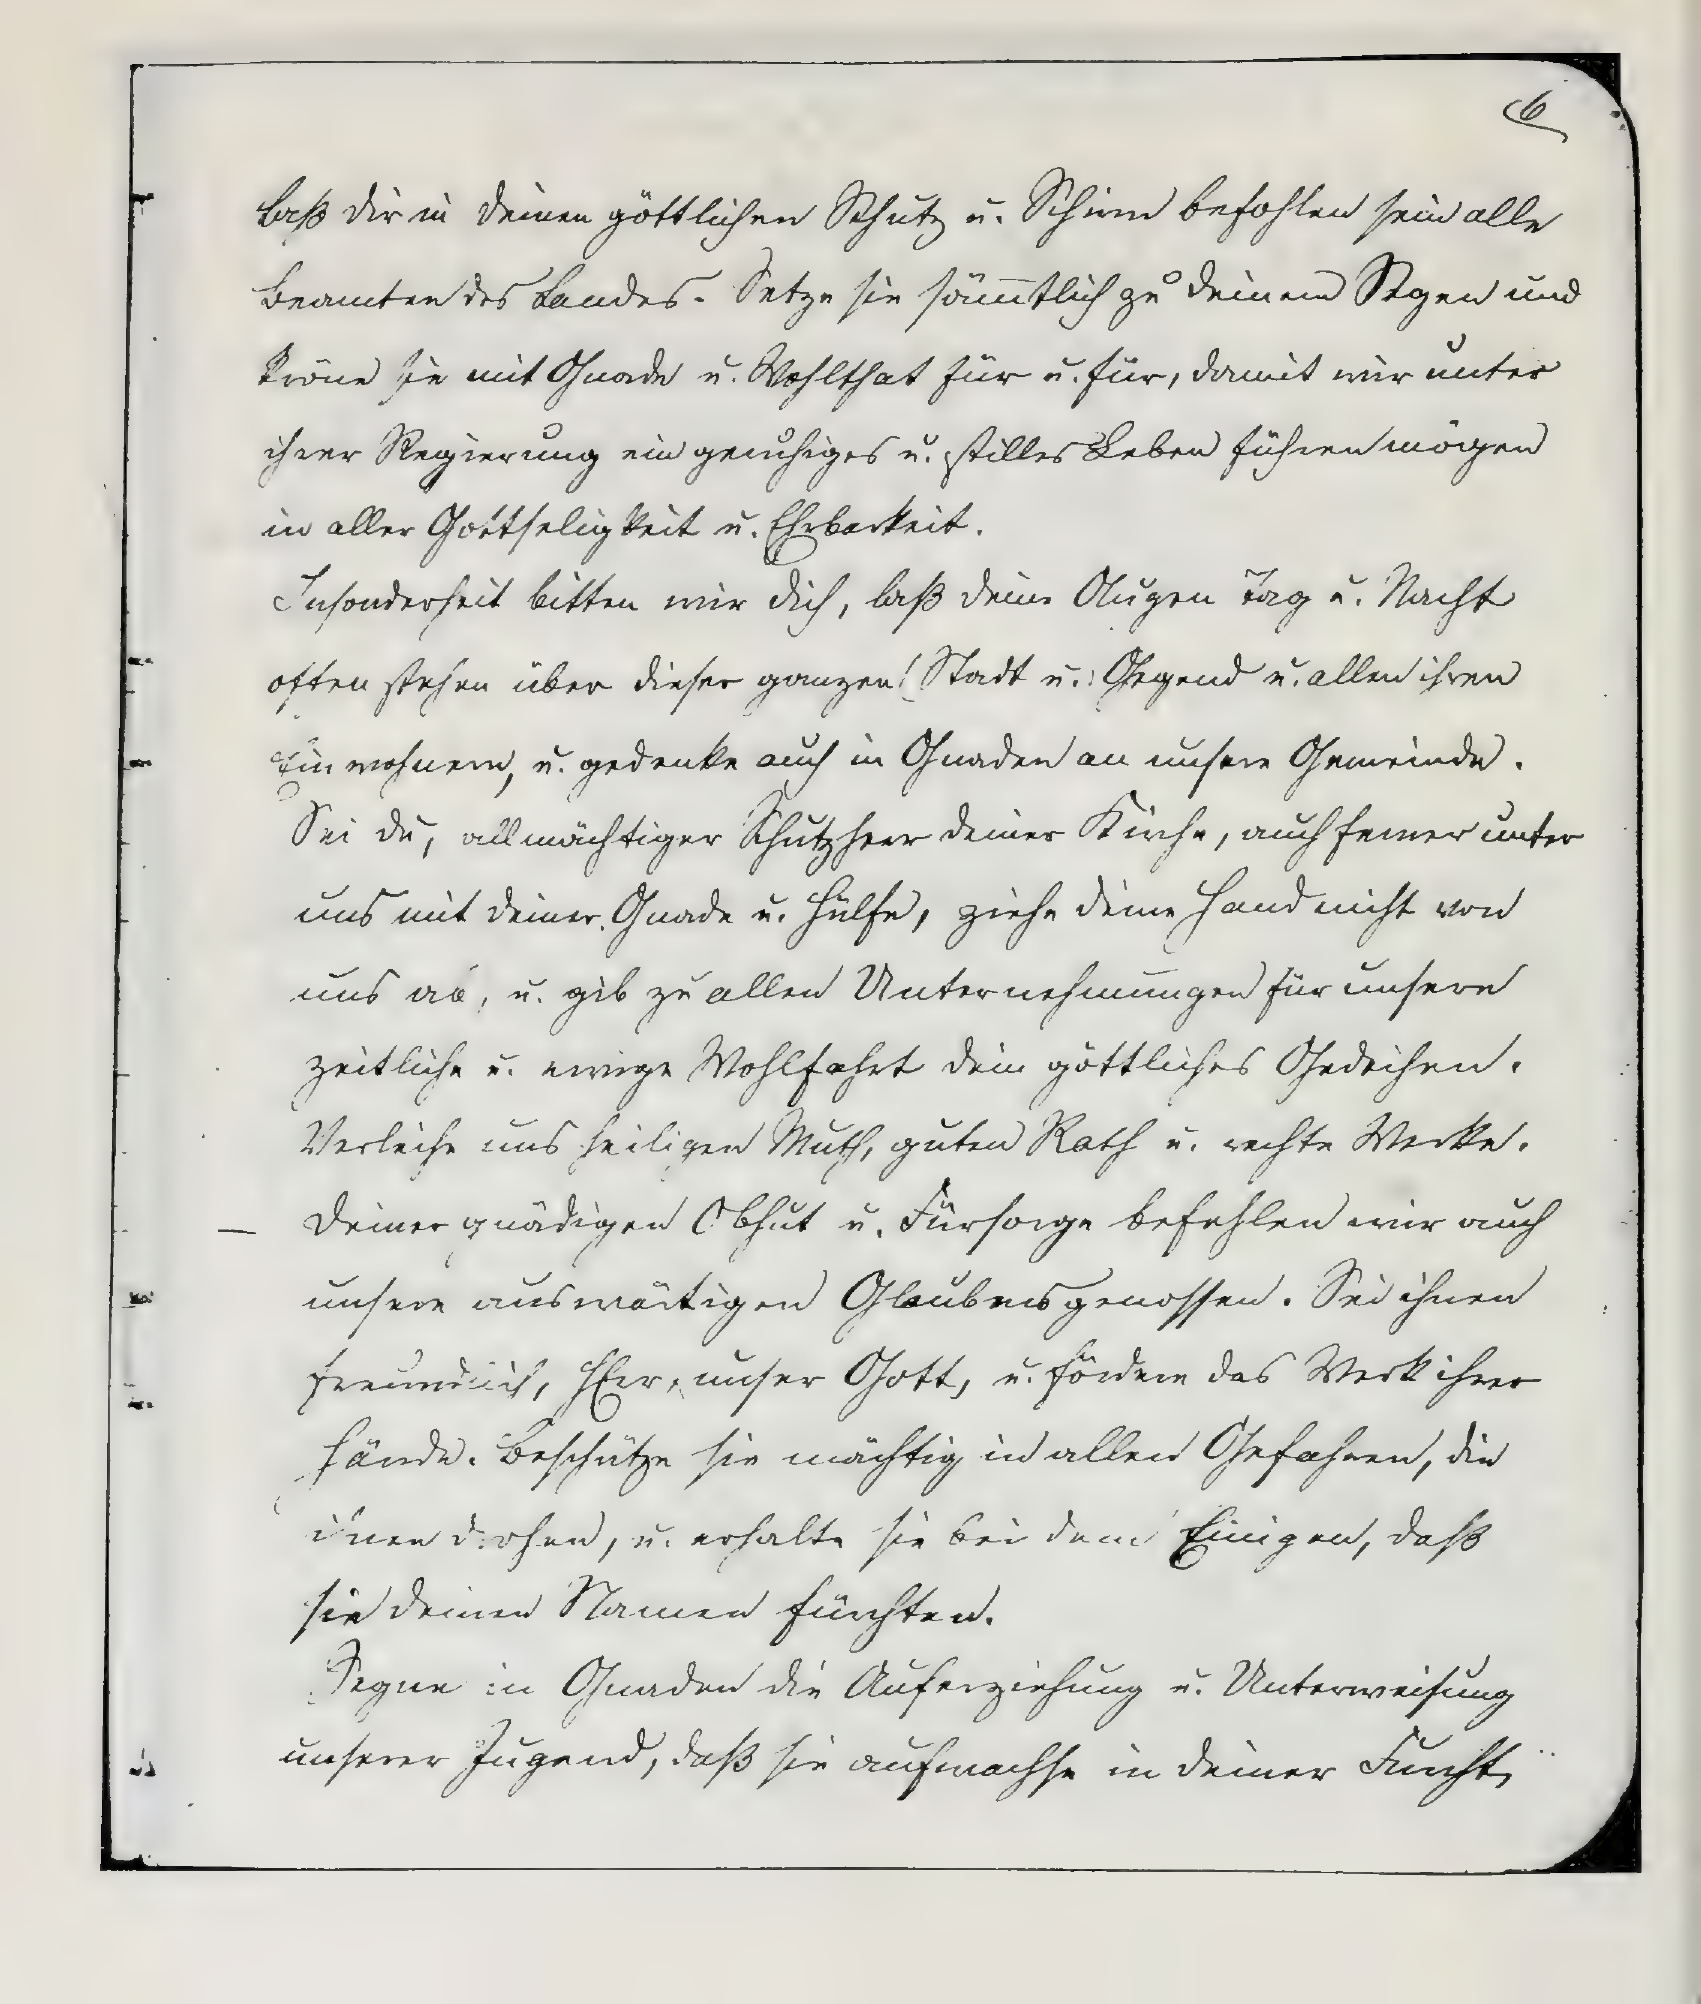 6
Laß dir in deinen göttlichen Schutz u. Schirm befohlen sein alle
Beamten des Landes. Setze sie sämmtlich zu deinem Segen und
kröne sie mit Gnade u. Wohlthat für u. für, damit wir unter
ihrer Regierung ein geruhiges u. stilles Leben führen mögen
in aller Gottseligkeit u. Ehrbarkeit.
Insonderheit bitten wir dich, laß deine Augen Tag u. Nacht
offen stehen über dieser ganzen (Stadt u.) Gegend u. allen ihren
Einwohnern, u. gedenke auch in Gnaden an unsere Gemeinde.
Sei du, allmächtiger Schutzherr deiner Kirche, auch ferner unter
uns mit deiner Gnade u. Hülfe, ziehe deine Hand nicht von
uns ab, u. gib zu allen Unternehmungen für unsere
zeitliche u. ewige Wohlfahrt dein göttliches Gedeihen.
Verleihe uns heiligen Muth, guten Rath u. rechte Werke.
— Deiner gnädigen Obhut u. Fürsorge befehlen wir auch
unsere auswärtigen Glaubensgenossen. Sei ihnen
freundlich, HErr, unser Gott, u. fördere das Werk ihrer
Hände. Beschütze sie mächtig in allen Gefahren, die
ihnen drohen, u. erhalte sie bei dem Einigen, daß
sie deinen Namen fürchten.
Segne in Gnaden die Auferziehung u. Unterweisung
unserer Jugend, daß sie aufwachse in deiner Furcht,